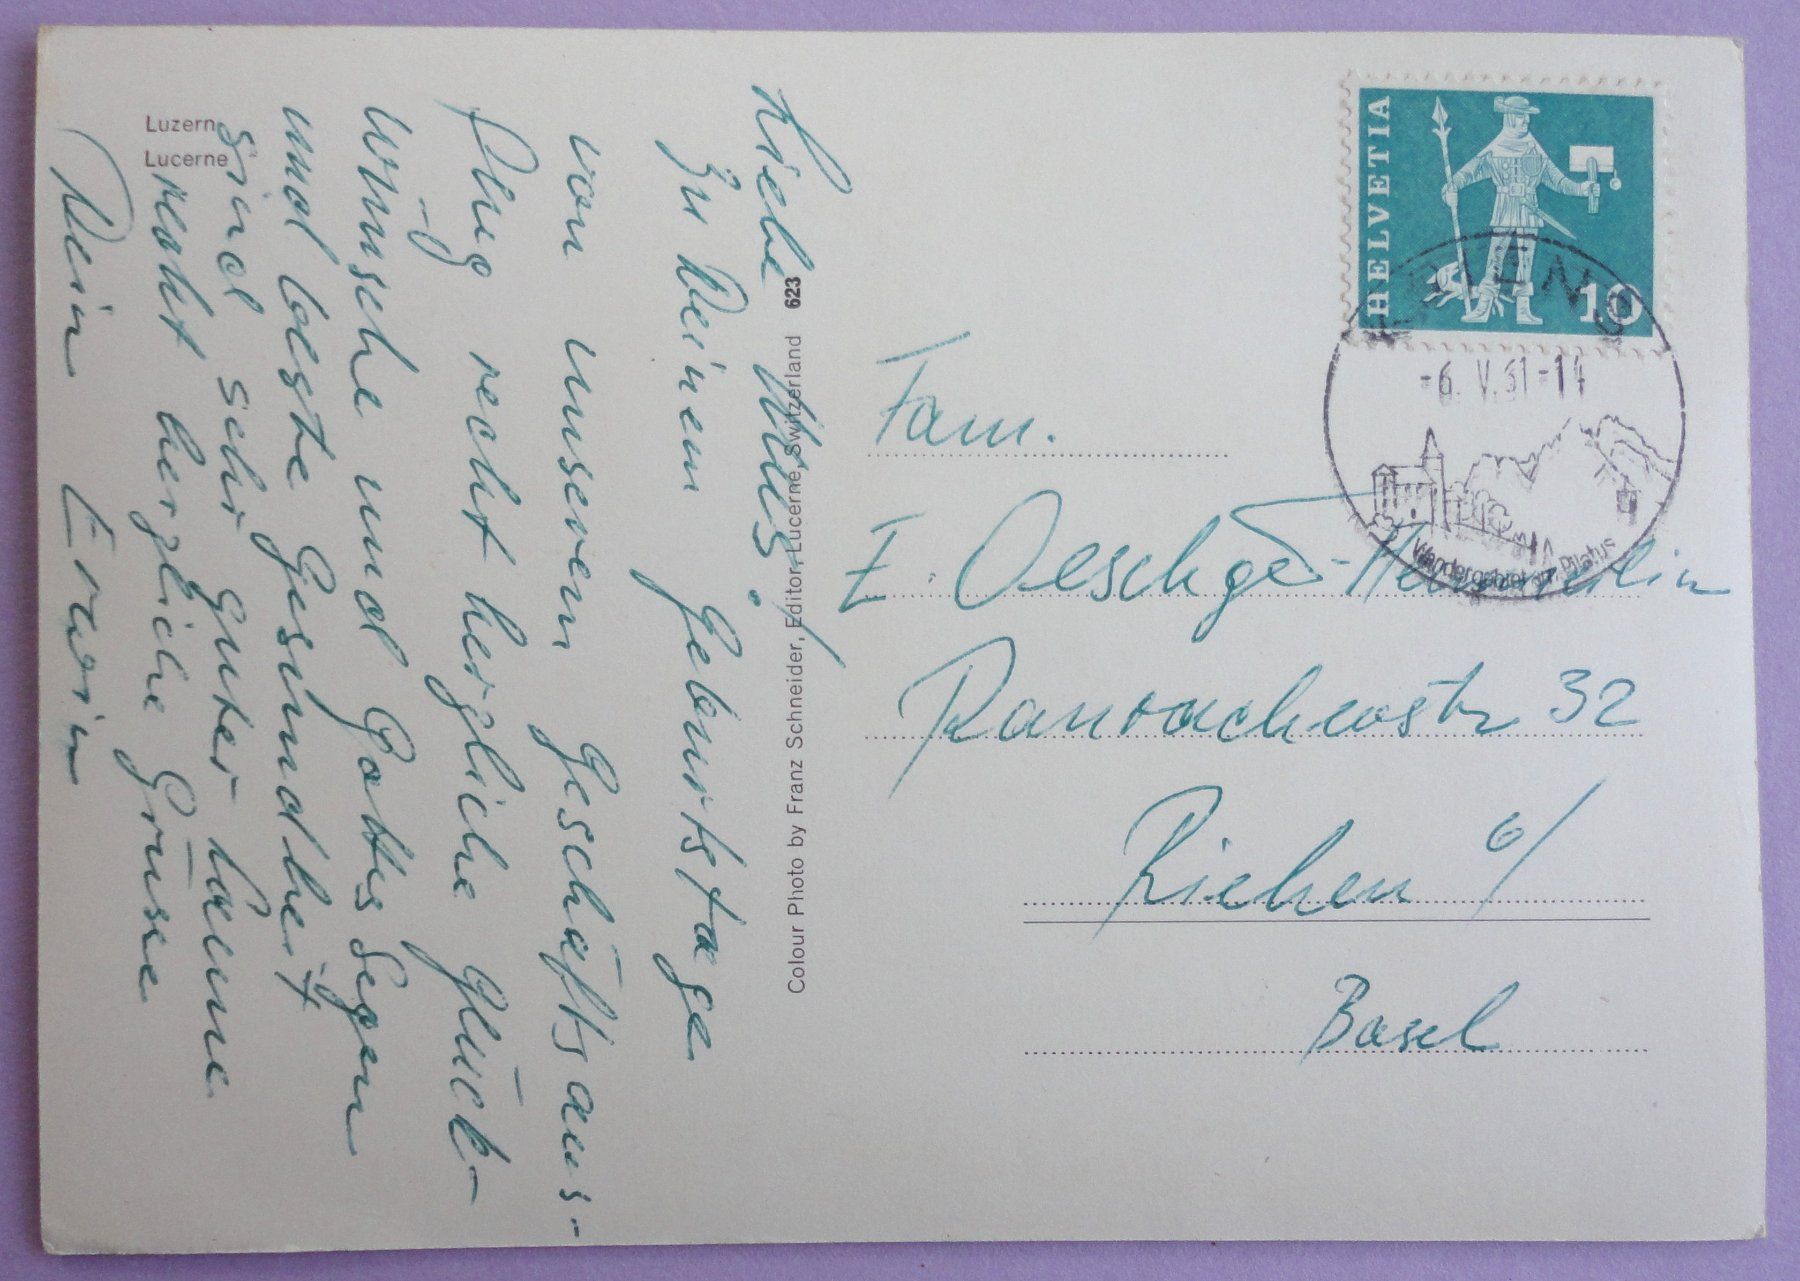 Luzern
Lucerne
Liebe
Zu Deinem Geburtstage
von unserem Geschäftsaus-
flug recht herzliche Glück-
wünsche und Gottes Segen
und beste Gesundheit
sind sehr guter Laune
recht herzliche Grüsse
Dein Erwin
Colour Photo by Franz Schneider, Editor, Lucerne, Switzerland 623
HELVETIA
10
KRIENS
-6. V. 61-14
Wandergebiet am Pilatus
Fam.
E. Oeschger-
32
Riehen b/
Basel